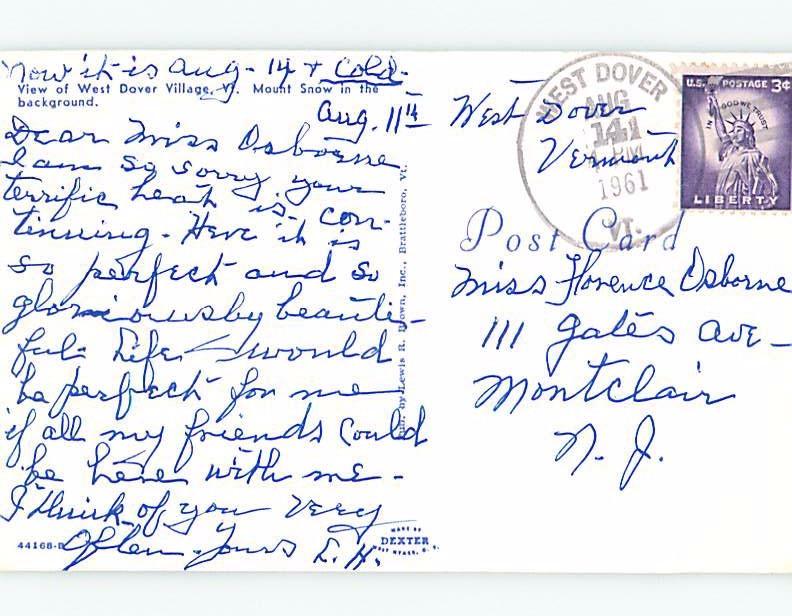 Now it is Aug - 14 + Cold -
View of West Dover Village, Vt. Mount Snow in the
background.
Aug. 11th
Dear Miss Osborne
I am so sorry your
terrific heat is con-
tinuing - Here it is
so perfect and so
gloriously beauti-
ful. Life would
be perfect for me
if all my friends could
be here with me -
I think of you very
often - Yours L. H.
44168-B
Pub. by Lewis R. Brown, Inc., Brattleboro, Vt.
MADE BY
DEXTER
WEST NYACK, N. Y.
West Dover
Vermont
WEST DOVER
AUG
14
PM
1961
VT.
U.S. POSTAGE 3¢
IN GOD WE TRUST
LIBERTY
Post Card
Miss Florence Osborne
111 Gates Ave -
Montclair
N. J.